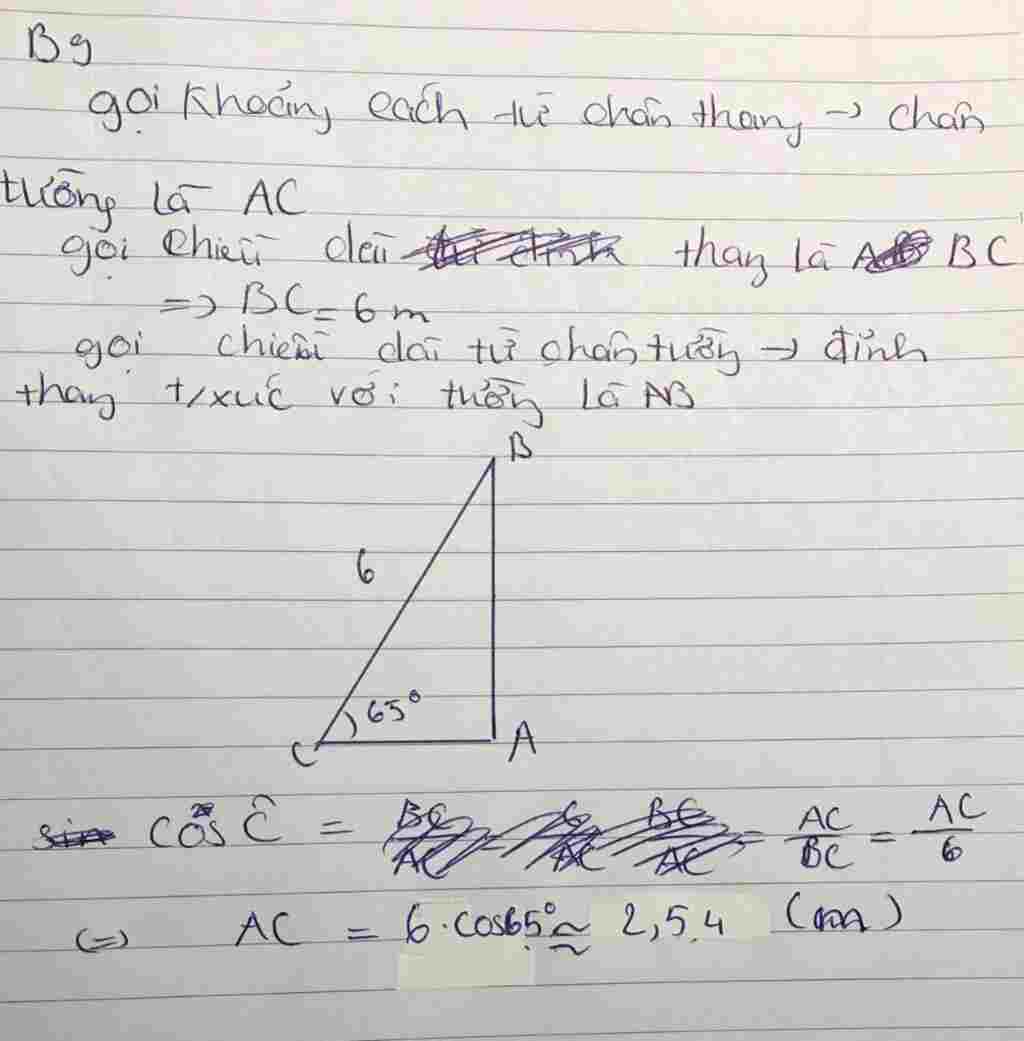 Bg
gọi khoảng cách từ chân thang → chân
tường là AC
gọi chiều dài thang là BC
=> BC = 6 m
gọi chiều dài từ chân tường → đỉnh
thang t/xúc với tường là AB
B
6
65°
C A
cos Ĉ = AC/BC = AC/6
(=) AC = 6.cos65° ≈ 2,54 (m)